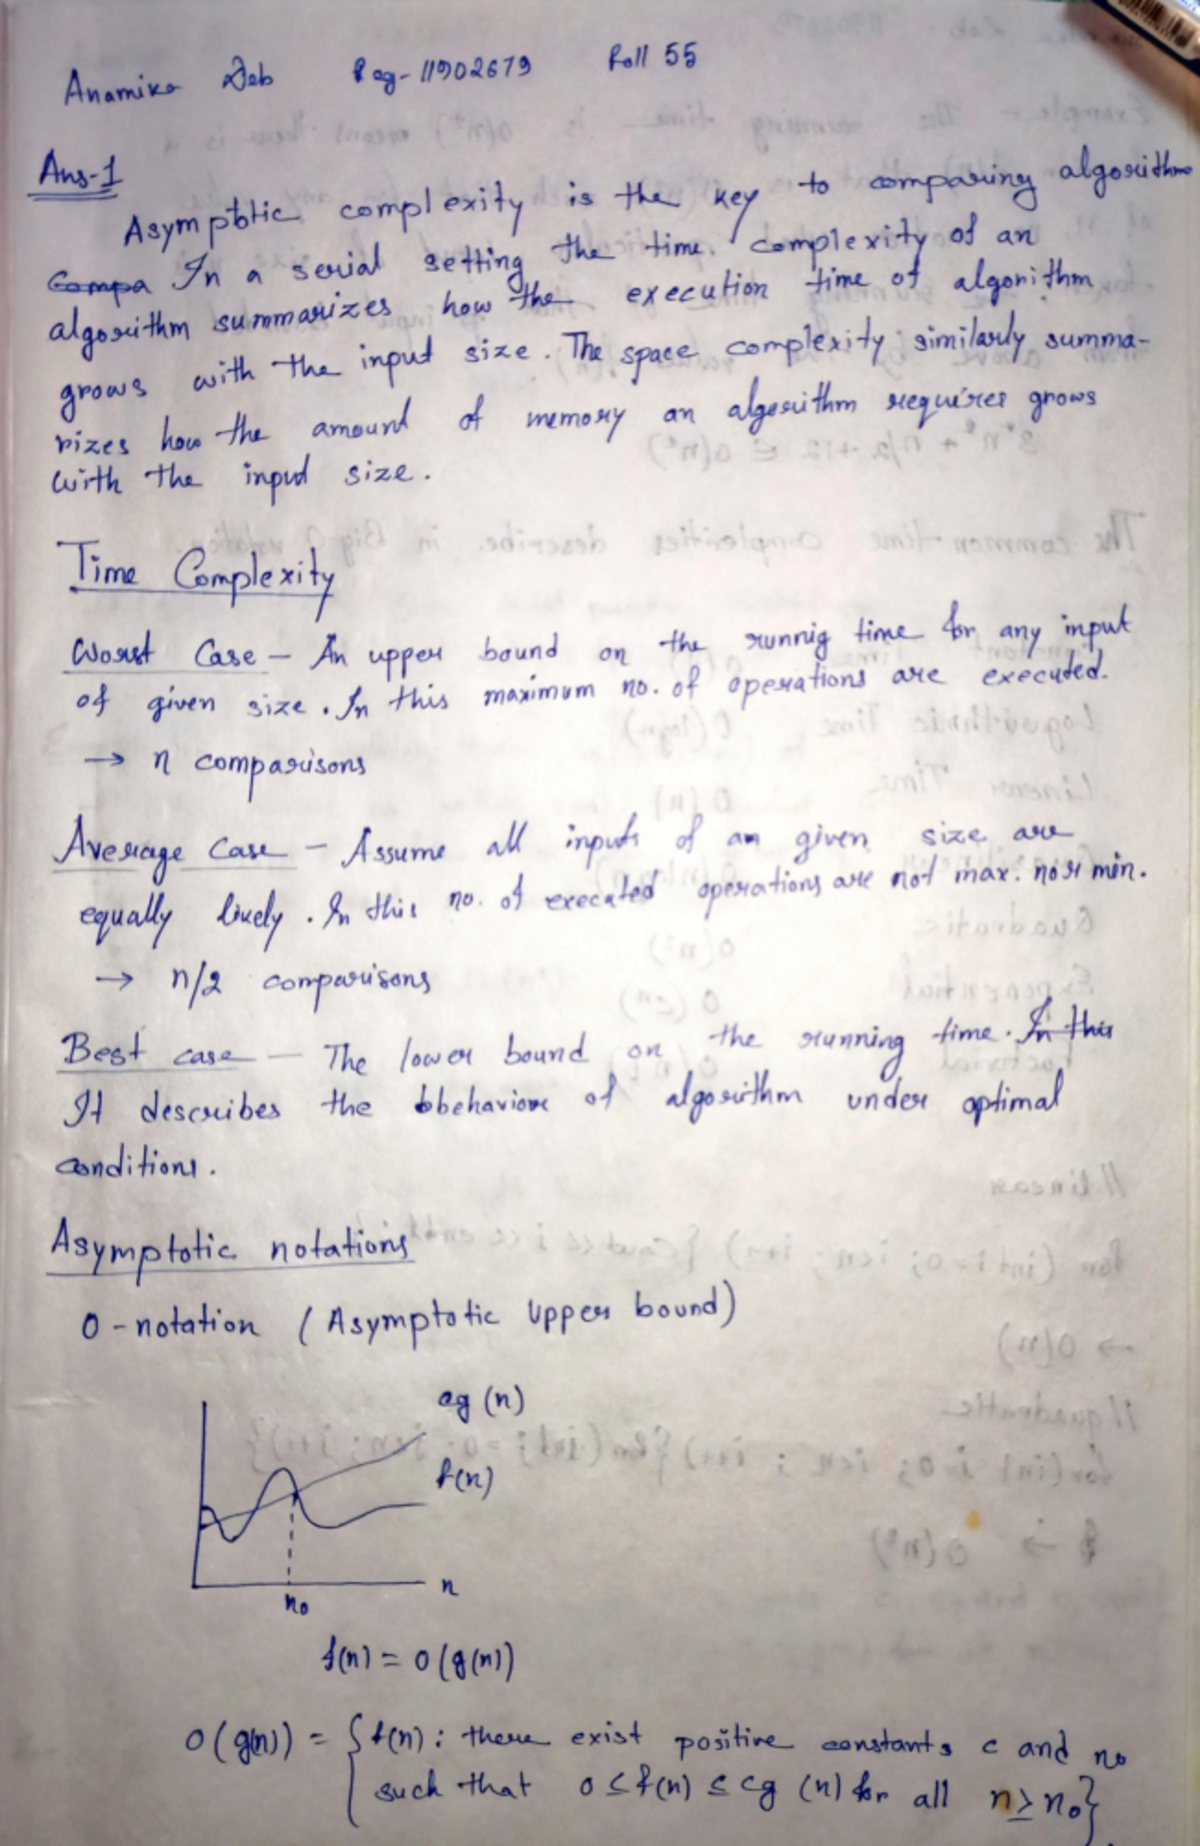 Anamika Deb Reg-11902679 Roll 55
Ans-1
Asymptotic complexity is the key to comparing algorithms
Compa In a serial setting the time complexity of an
algorithm summarizes how the execution time of algorithm
grows with the input size. The space complexity similarly summa-
rizes how the amount of memory an algorithm requires grows
with the input size.
Time Complexity
Worst Case - An upper bound on the runnig time for any input
of given size. In this maximum no. of operations are executed.
→ n comparisons
Average Case - Assume all inputs of an given size are
equally likely. In this no. of executed operations are not max. nor min.
→ n/2 comparisons
Best case - The lower bound on the running time. In this
It describes the bbehaviour of algorithm under optimal
conditions.
Asymptotic notations
O-notation (Asymptotic Upper bound)
cg(n)
f(n)
n
n₀
f(n) = O(g(n))
O(g(n)) = {f(n): there exist positive constants c and n₀
such that 0 ≤ f(n) ≤ cg(n) for all n ≥ n₀}